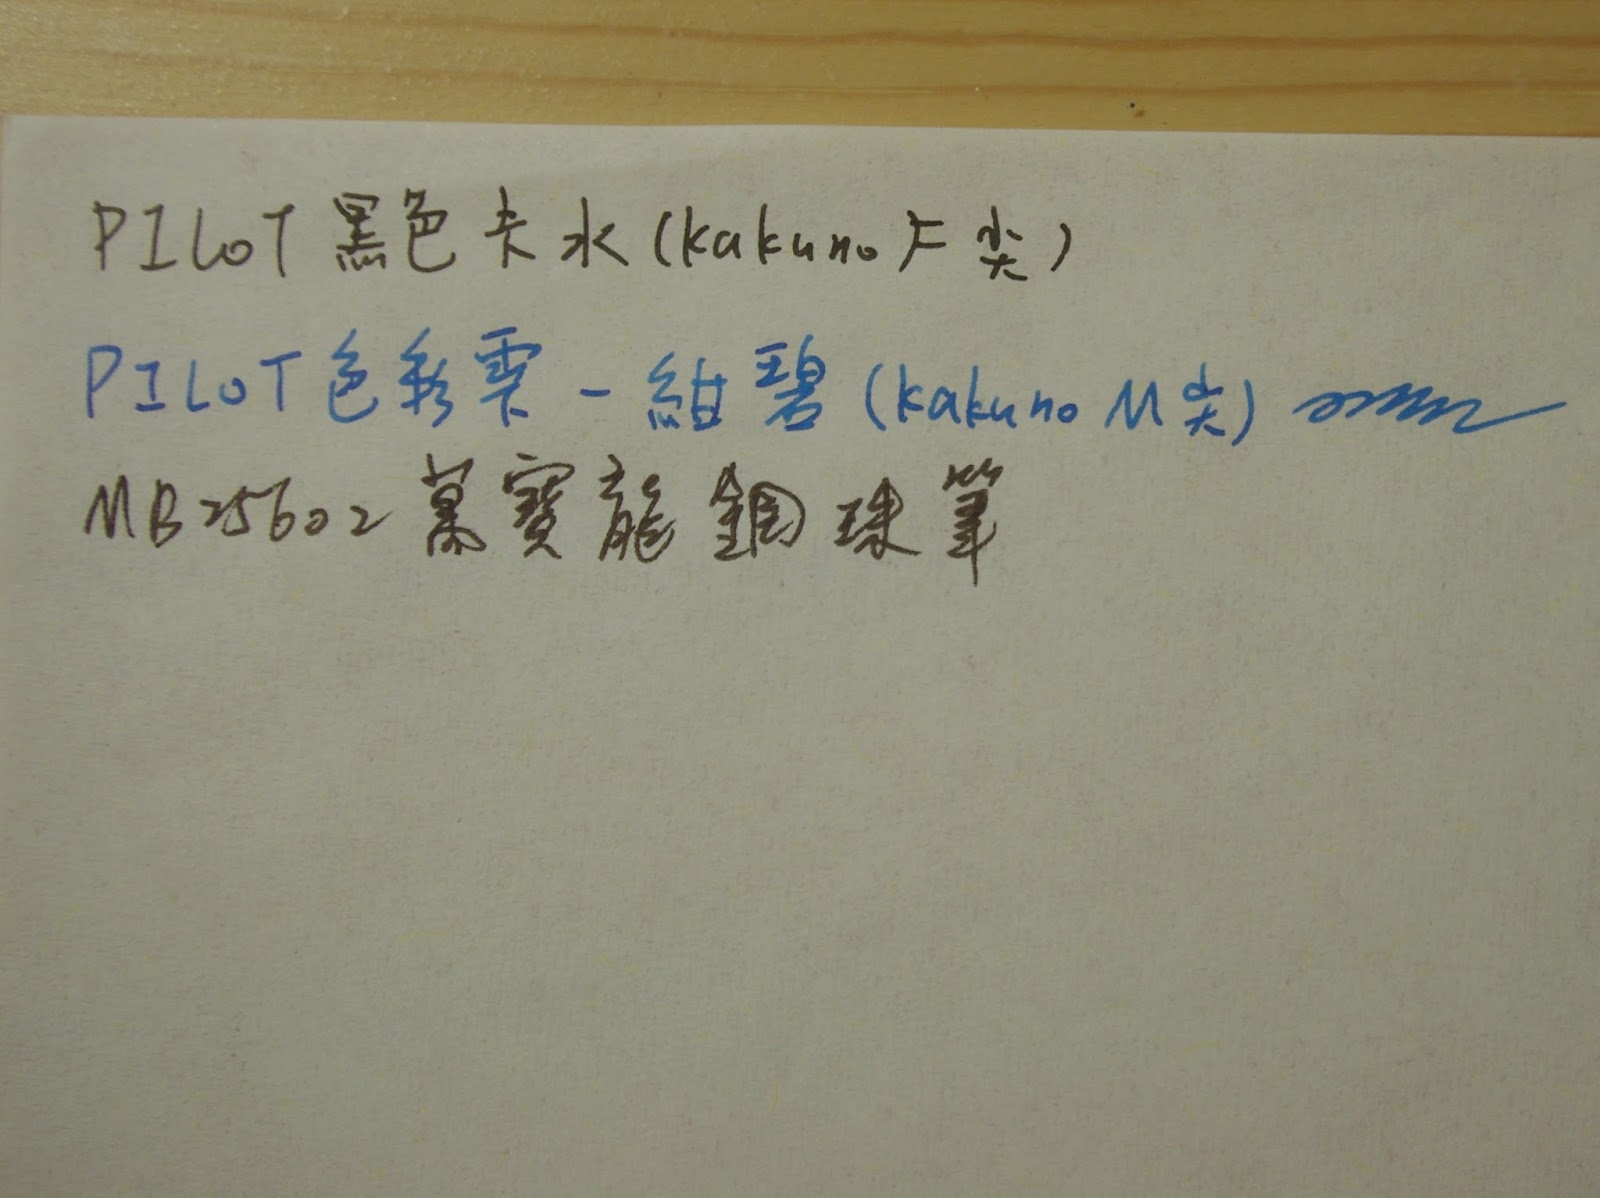 PILOT 黑色卡水(kakuno F尖)
PILOT色彩雫-紺碧(kakuno M尖)
MB25602萬寶龍鋼珠筆